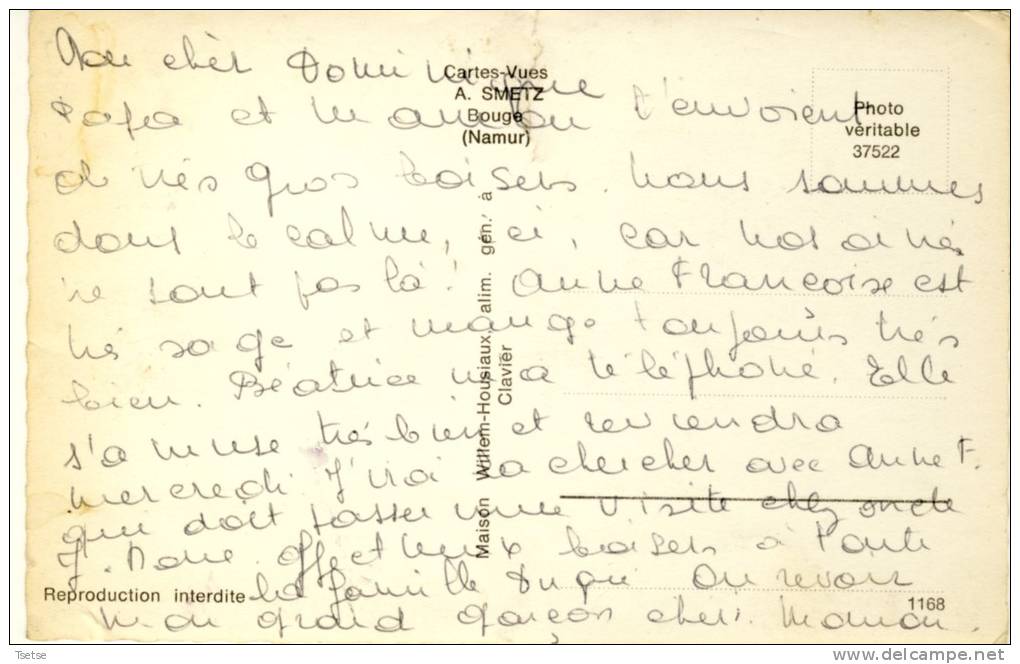 Mon cher Dominique
Papa et Maman t'envoient
de très gros baisers. Nous sommes
dans le calme, ici, car nos aînés
ne sont pas là! Anne Françoise est
très sage et mange toujours très
bien. Béatrice m'a téléphoné. Elle
s'amuse très bien et reviendra
mercredi J'irai la chercher avec Anne F.
qui doit passer une visite chez oncle
J. Marie. et baisers à toute
la famille Au revoir
Mon grand garçon chéri. Maman.
Cartes-Vues
A. SMETZ
Bouge
(Namur)
Photo
véritable
37522
Maison Willem-Housiaux, alim. gén. à
Clavier
Reproduction interdite
1168
Tsetse
http://www.delcampe.net